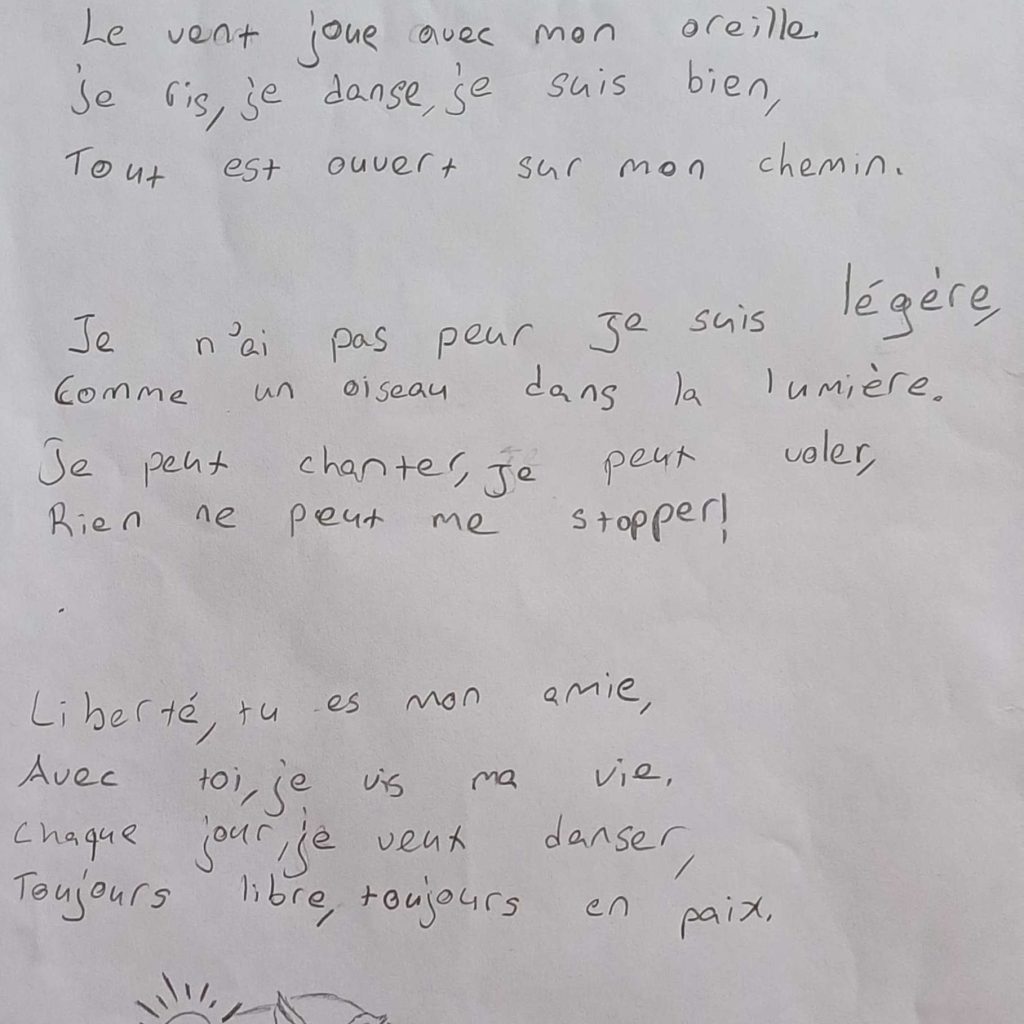 Le vent joue avec mon oreille.
je ris, je danse, je suis bien,
Tout est ouvert sur mon chemin.
Je n'ai pas peur je suis légère,
Comme un oiseau dans la lumière.
Je peut chanter, je peux voler,
Rien ne peut me stopper!
Liberté, tu es mon amie,
Avec toi, je vis ma vie.
Chaque jour, je veux danser,
Toujours libre, toujours en paix.